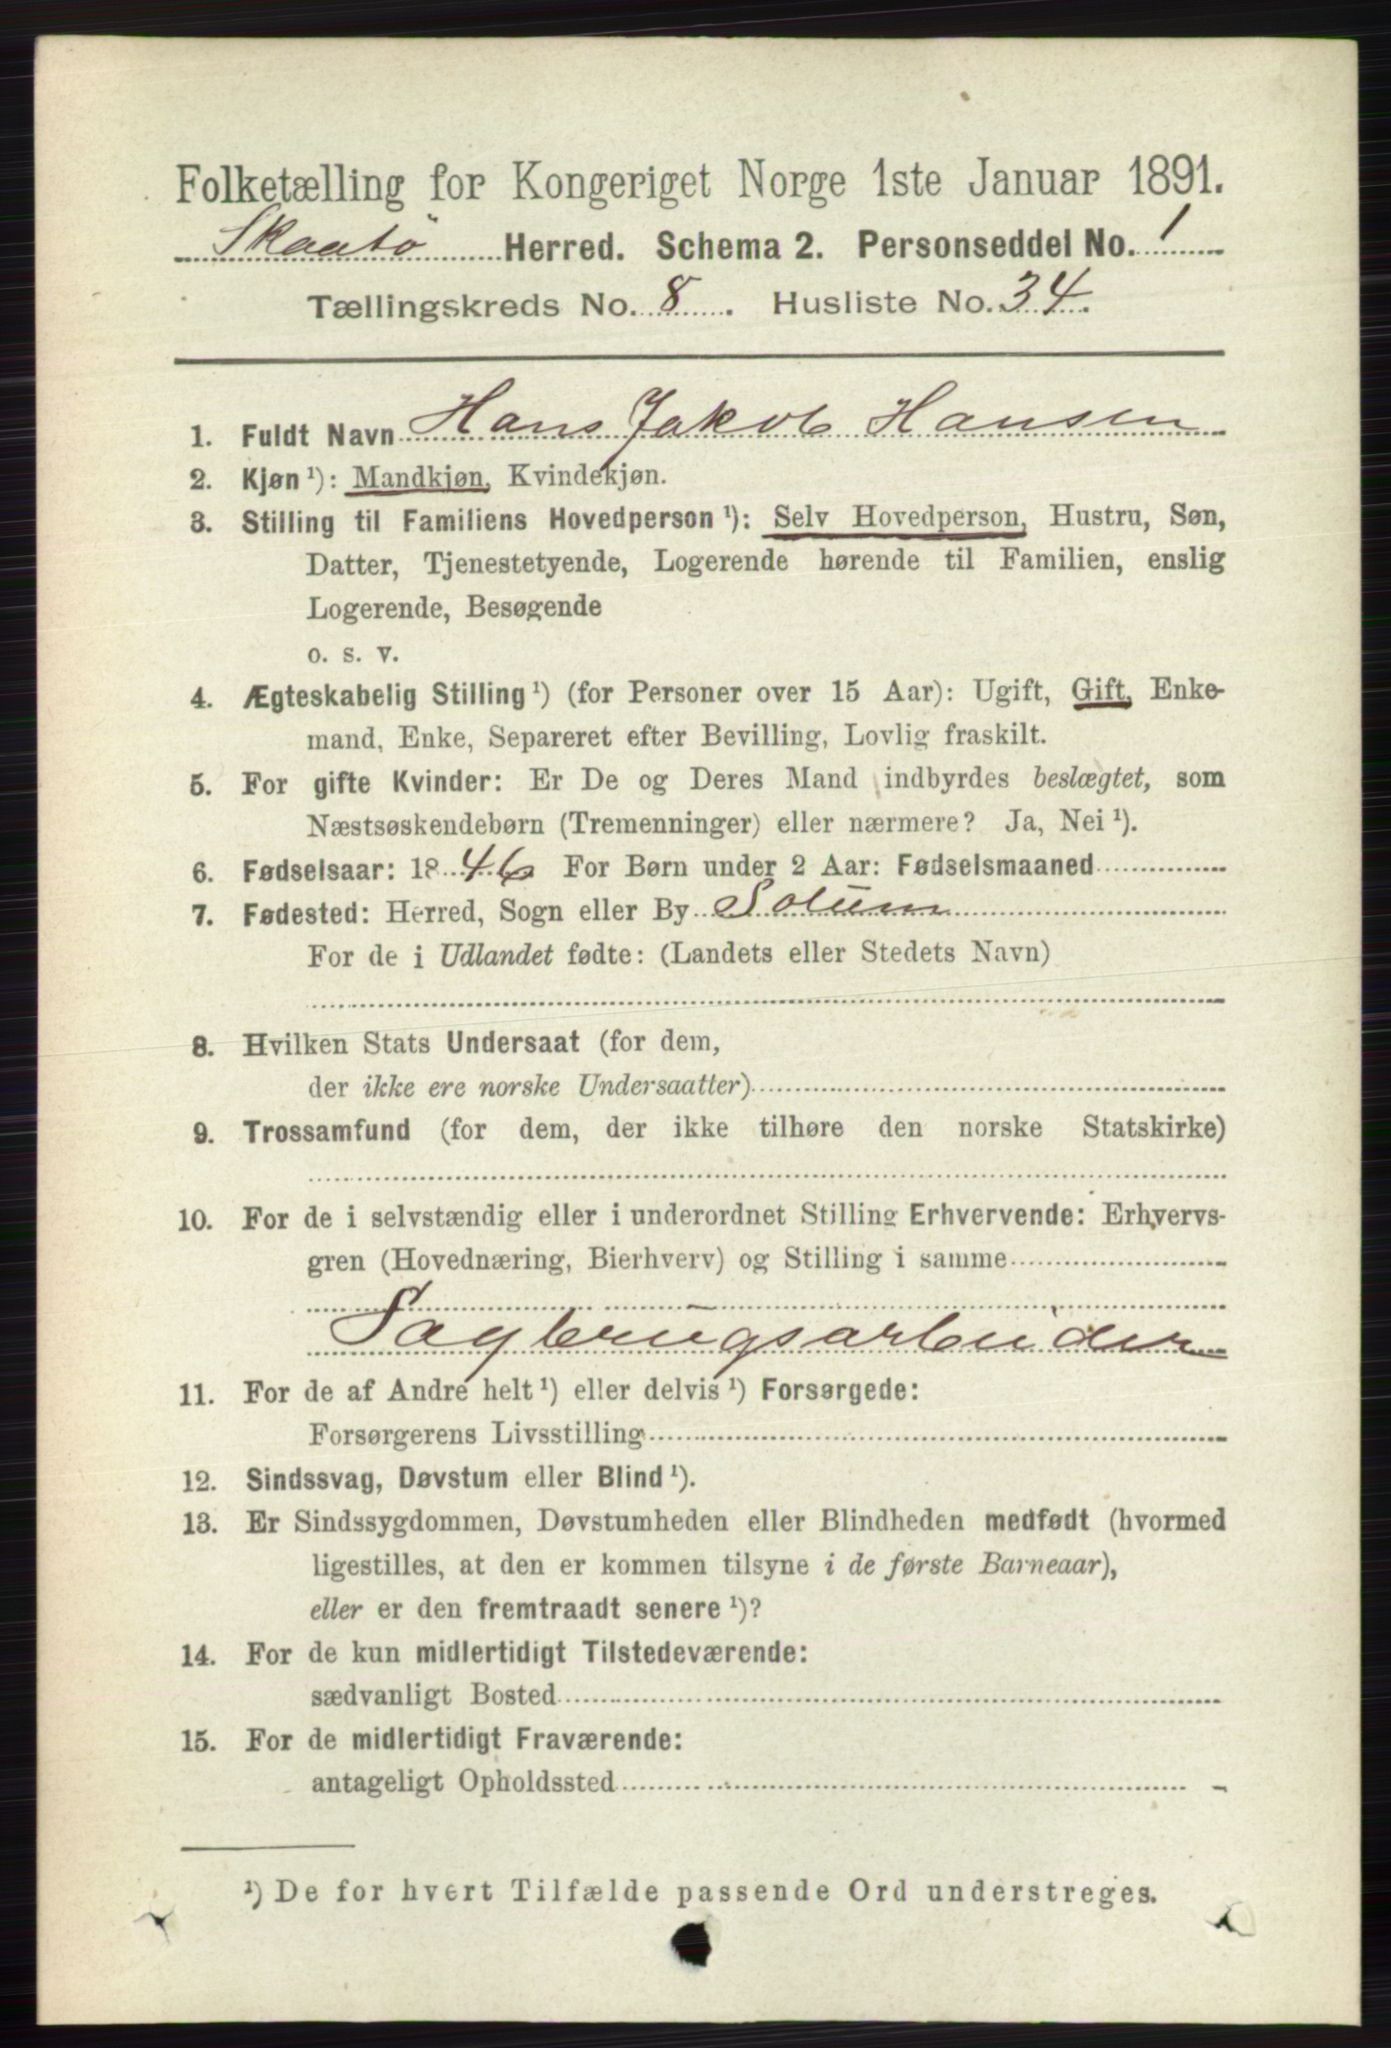 Folketælling for Kongeriget Norge 1ste Januar 1891.
Skaatö Herred. Schema 2. Personseddel No. 1
Tællingskreds No. 8. Husliste No. 34.
1. Fuldt Navn Hans Jakob Hansen
2. Kjøn ¹): Mandkjøn, Kvindekjøn.
3. Stilling til Familiens Hovedperson ¹): Selv Hovedperson, Hustru, Søn,
Datter, Tjenestetyende, Logerende hørende til Familien, enslig
Logerende, Besøgende
o. s. v.
4. Ægteskabelig Stilling ¹) (for Personer over 15 Aar): Ugift, Gift, Enke-
mand, Enke, Separeret efter Bevilling, Lovlig fraskilt.
5. For gifte Kvinder: Er De og Deres Mand indbyrdes beslægtet, som
Næstsøskendebørn (Tremenninger) eller nærmere? Ja, Nei ¹).
6. Fødselsaar: 1846 For Børn under 2 Aar: Fødselsmaaned
7. Fødested: Herred, Sogn eller By Solum
For de i Udlandet fødte: (Landets eller Stedets Navn)
8. Hvilken Stats Undersaat (for dem,
der ikke ere norske Undersaatter)
9. Trossamfund (for dem, der ikke tilhøre den norske Statskirke)
10. For de i selvstændig eller i underordnet Stilling Erhvervende: Erhvervs-
gren (Hovednæring, Bierhverv) og Stilling i samme
Sagbrugsarbeider
11. For de af Andre helt ¹) eller delvis ¹) Forsørgede:
Forsørgerens Livsstilling
12. Sindssvag, Døvstum eller Blind ¹).
13. Er Sindssygdommen, Døvstumheden eller Blindheden medfødt (hvormed
ligestilles, at den er kommen tilsyne i de første Barneaar),
eller er den fremtraadt senere ¹)?
14. For de kun midlertidigt Tilstedeværende:
sædvanligt Bosted
15. For de midlertidigt Fraværende:
antageligt Opholdssted
¹) De for hvert Tilfælde passende Ord understreges.